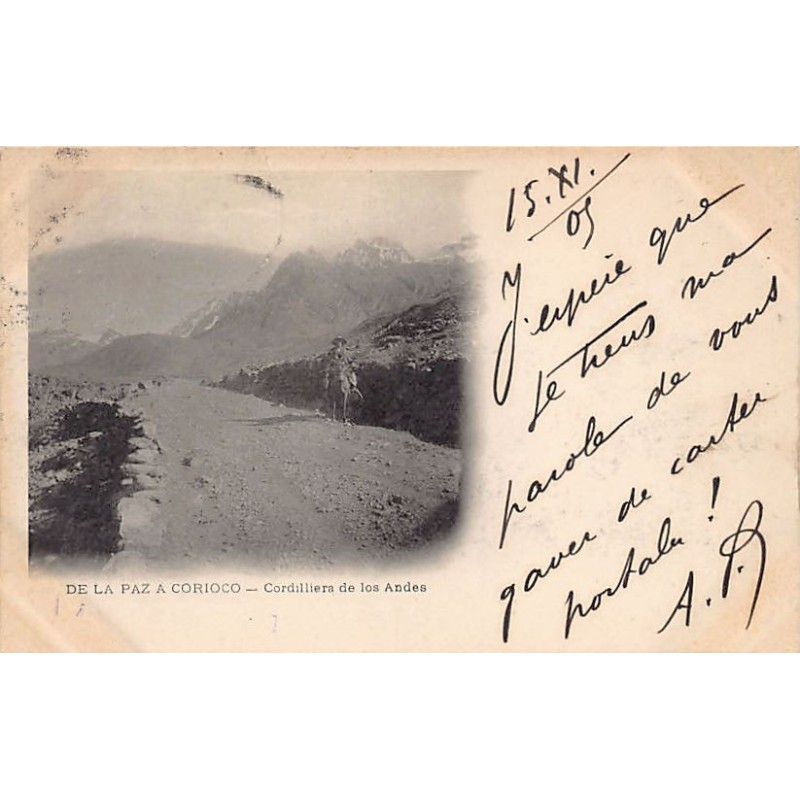 15.XI.
05
J'espère que
je tiens ma
parole de vous
gaver de cartes
postales !
A. P.
DE LA PAZ A CORIOCO — Cordilliera de los Andes